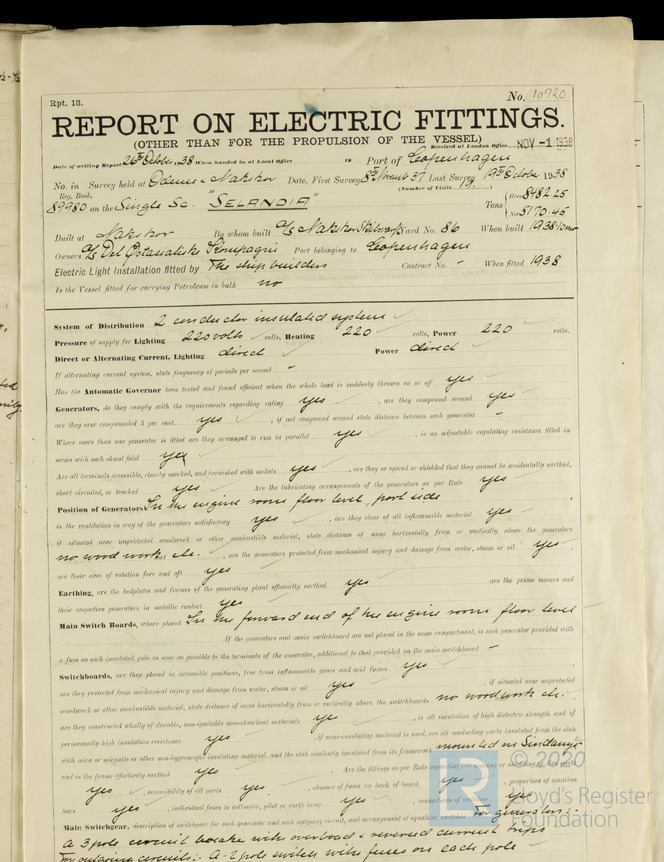 Rpt. 13.
No. 10720
REPORT ON ELECTRIC FITTINGS.
(OTHER THAN FOR THE PROPULSION OF THE VESSEL)
Received at London Office NOV -1 1938
Date of writing Report 26th October 1938 When handed in at Local Office 19 Port of Copenhagen
No. in Survey held at Odense & Nakskov Date, First Survey 37 Last Survey 19th October 1938
Reg. Book. (Number of Visits
89980 on the Single Sc. "SELANDIA" Tons { Gross 8482.25
Net 5170.45
Built at Nakskov By whom built A/S Nakskov Skibsværft Yard No. 86 When built 1938-10 mo
Owners A/S Det Østasiatiske Kompagni Port belonging to Copenhagen
Electric Light Installation fitted by The shipbuilders Contract No. - When fitted 1938
Is the Vessel fitted for carrying Petroleum in bulk no
System of Distribution 2 conductor insulated system
Pressure of supply for Lighting 220 volts volts, Heating 220 volts, Power 220 volts.
Direct or Alternating Current, Lighting direct Power direct
If alternating current system, state frequency of periods per second -
Has the Automatic Governor been tested and found efficient when the whole load is suddenly thrown on or off yes
Generators, do they comply with the requirements regarding rating yes , are they compound wound yes
are they over compounded 5 per cent. yes , if not compound wound state distance between each generator -
Where more than one generator is fitted are they arranged to run in parallel yes , is an adjustable regulating resistance fitted in
series with each shunt field yes
Are all terminals accessible, clearly marked, and furnished with sockets yes , are they so spaced or shielded that they cannot be accidentally earthed,
short circuited, or touched yes Are the lubricating arrangements of the generators as per Rule yes
Position of Generators In the engine room floor level, port side
is the ventilation in way of the generators satisfactory yes , are they clear of all inflammable material yes
if situated near unprotected woodwork or other combustible material, state distance of same horizontally from or vertically above the generators
no wood work etc. , are the generators protected from mechanical injury and damage from water, steam or oil yes
are their axes of rotation fore and aft yes
Earthing, are the bedplates and frames of the generating plant efficiently earthed yes are the prime movers and
their respective generators in metallic contact yes
Main Switch Boards, where placed In the forward end of the engine room floor level
If the generators and main switchboard are not placed in the same compartment, is each generator provided with
a fuse on each insulated pole as near as possible to the terminals of the generator, additional to that provided on the main switchboard -
Switchboards, are they placed in accessible positions, free from inflammable gases and acid fumes yes
are they protected from mechanical injury and damage from water, steam or oil yes , if situated near unprotected
woodwork or other combustible material, state distance of same horizontally from or vertically above the switchboards no woodwork etc.
are they constructed wholly of durable, non-ignitable non-absorbent materials yes , is all insulation of high dielectric strength and of
permanently high insulation resistance yes , if semi-insulating material is used, are all conducting parts insulated from the slab
with mica or micanite or other non-hygroscopic insulating material, and the slab similarly insulated from its framework mounted on Sindanyo
and is the frame effectively earthed yes . Are the fittings as per Rule regarding
yes , accessibility of all parts yes , absence of fuses on back of board yes , proportion of omnibus
bars yes , individual fuses to voltmeter, pilot or earth lamp yes , connections of yes
Main Switchgear, description of switchgear for each generator and each outgoing circuit, and arrangement of equaliser switches For generators:
A 3 pole circuit breaker with overload & reversed current trips
For outgoing circuits:- A 2 pole switch with fuses on each pole
© 2020
LR
Lloyd's Register
Foundation